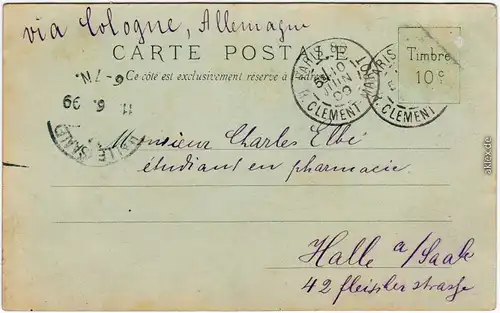 via Cologne, Allemagne
CARTE POSTALE
Ce côté est exclusivement réservé à l'adresse
Timbre
10 c
PARIS
R. CLEMENT
PARIS
CLEMENT
6-7N.
11. 6. 99
HALLE
(SAALE)
Monsieur Charles Elbé
étudiant en pharmacie.
Halle a/Saale
42 fleischerstrasse
akpool.de